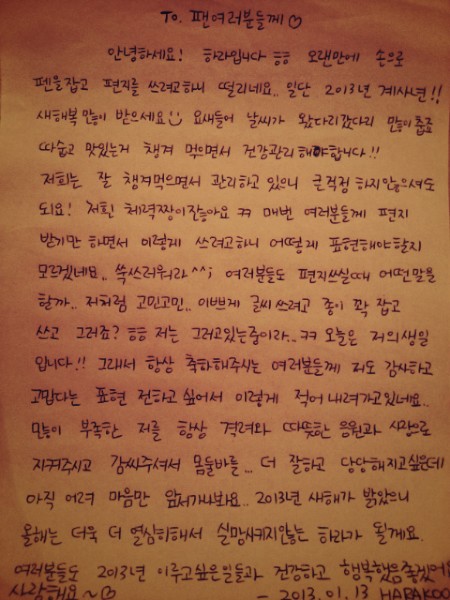 To. 팬여러분들께♡
안녕하세요! 하라입니다 ㅎㅎ 오랜만에 손으로
펜을잡고 편지를 쓰려고하니 떨리네요.. 일단 2013년 계사년!!
새해복 많이 받으세요! 요새들어 날씨가 왔다리갔다리 많이춥죠
따숩고 맛있는거 챙겨 먹으면서 건강관리 해야합니다!!
저희는 잘 챙겨먹으면서 관리하고 있으니 큰걱정 하지않으셔도
되요! 저흰 체력짱이잖아요 ㅋ 매번 여러분들께 편지
받기만 하면서 이렇게 쓰려고하니 어떻게 표현해야할지
모르겠네요.. 쑥쓰러워라^^; 여러분들도 편지쓰실때 어떤말을
할까.. 저처럼 고민고민.. 이쁘게 글씨 쓰려고 종이 꽉 잡고
쓰고 그러죠? ㅎㅎ 저는 그러고있는중이라..ㅋㅋ 오늘은 저의생일
입니다!! 그래서 항상 축하해주시는 여러분들께 저도 감사하고
고맙다는 표현 전하고 싶어서 이렇게 적어 내려가고있네요..
많이 부족한 저를 항상 격려와 따뜻한 응원과 사랑으로
지켜주시고 감싸주셔서 몸둘바를... 더 잘하고 당당해지고싶은데
아직 어려 마음만 앞서가나봐요.. 2013년 새해가 밝았으니
올해는 더욱 더 열심히해서 실망시키지않는 하라가 될게요.
여러분들도 2013년 이루고싶은일들과 건강하고 행복했음좋겠어요
사랑해요~♡ - 2013. 01. 13 HARAKOO